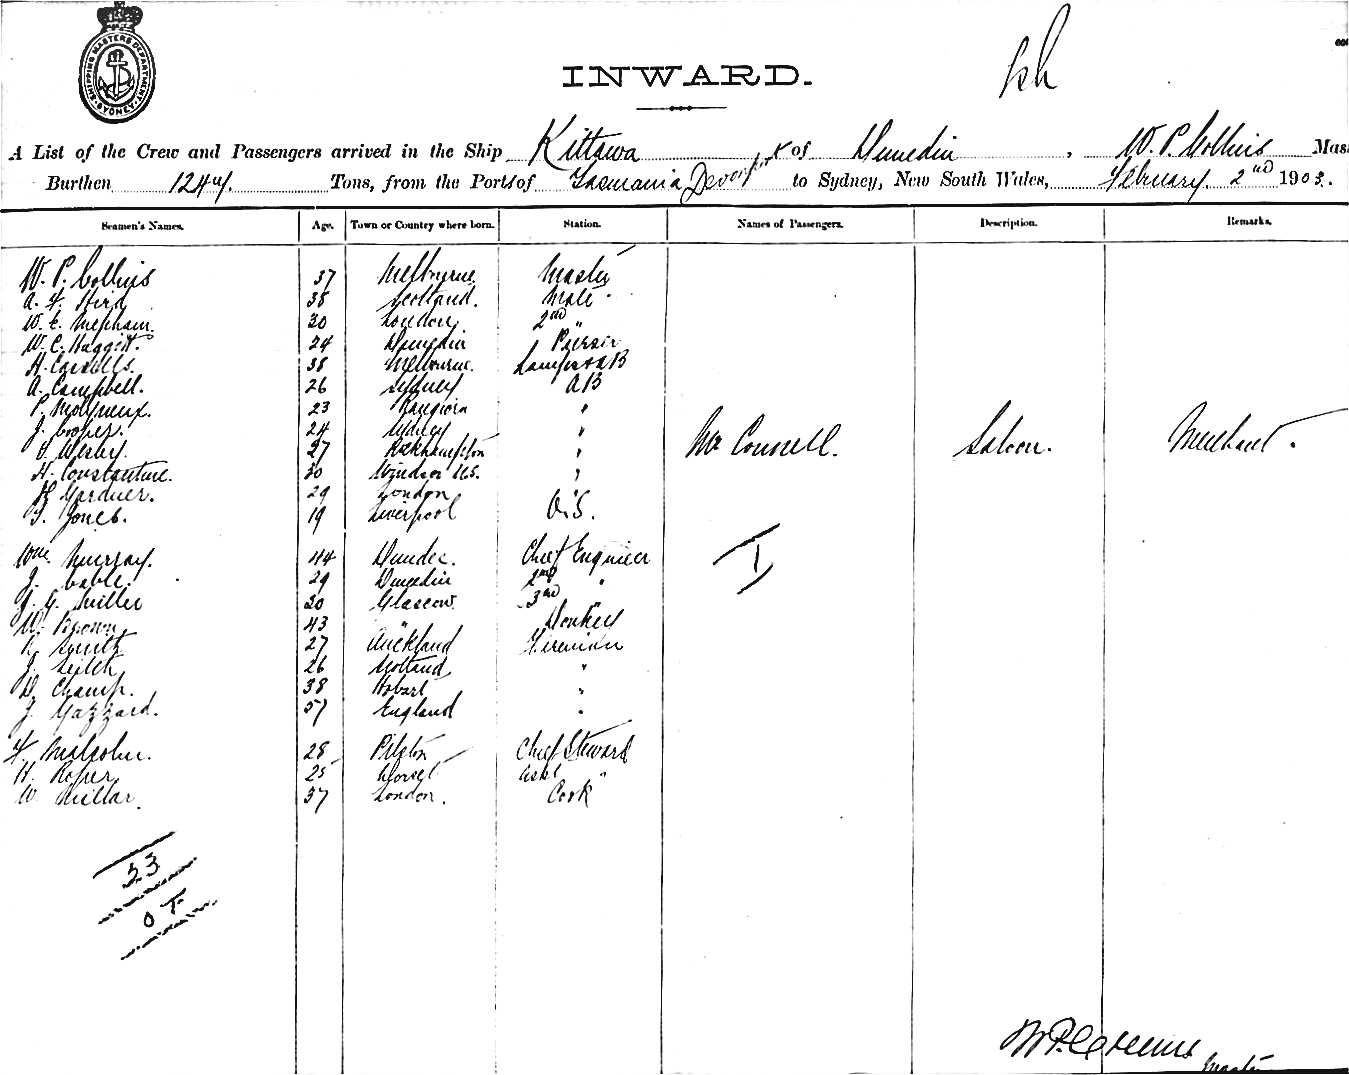 SHIPPING MASTERS DEPARTMENT SYDNEY
INWARD.
A List of the Crew and Passengers arrived in the Ship Kittawa of Dunedin, W. P. Collins Mas
Burthen 1247 Tons, from the Port of Tasmania Devonport to Sydney, New South Wales, February 2nd 1903.
Seamen's Names. Age. Town or Country where born. Station. Names of Passengers. Description. Remarks.
W. P. Collins 37 Melbourne Master
A. F. Hird 38 Scotland. Mate
W. E. Mepham. 30 London. 2nd "
W. C. Haggitt. 24 Dunedin Purser
H. Cassells. 38 Melbourne. Lamps & AB
A. Campbell. 26 Sydney AB
P. Molyneux. 23 Rangiora "
J. Cooper. 24 Sydney "
T. Wesley. 27 Rockhampton " Mr Connell. Saloon. Merchant.
H. Constantine. 30 Windsor "
H. Gardner. 29 London "
T. Jones. 19 Liverpool O.S.
Wm Murray. 44 Dundee. Chief Engineer
J. Cable. 29 Dunedin 2nd "
J. G. Miller 30 Glasgow 3rd
W. Brown 43 " Donkey
Smith 27 Auckland Fireman
J. Leitch 26 Scotland "
D. Champ. 38 Hobart "
J. Gazzard. 57 England "
F. Malcolm. 28 Chief Steward
H. Roper 25 Dorset Asst "
W Millar. 37 London. Cook
1
23
W P Collins
Master